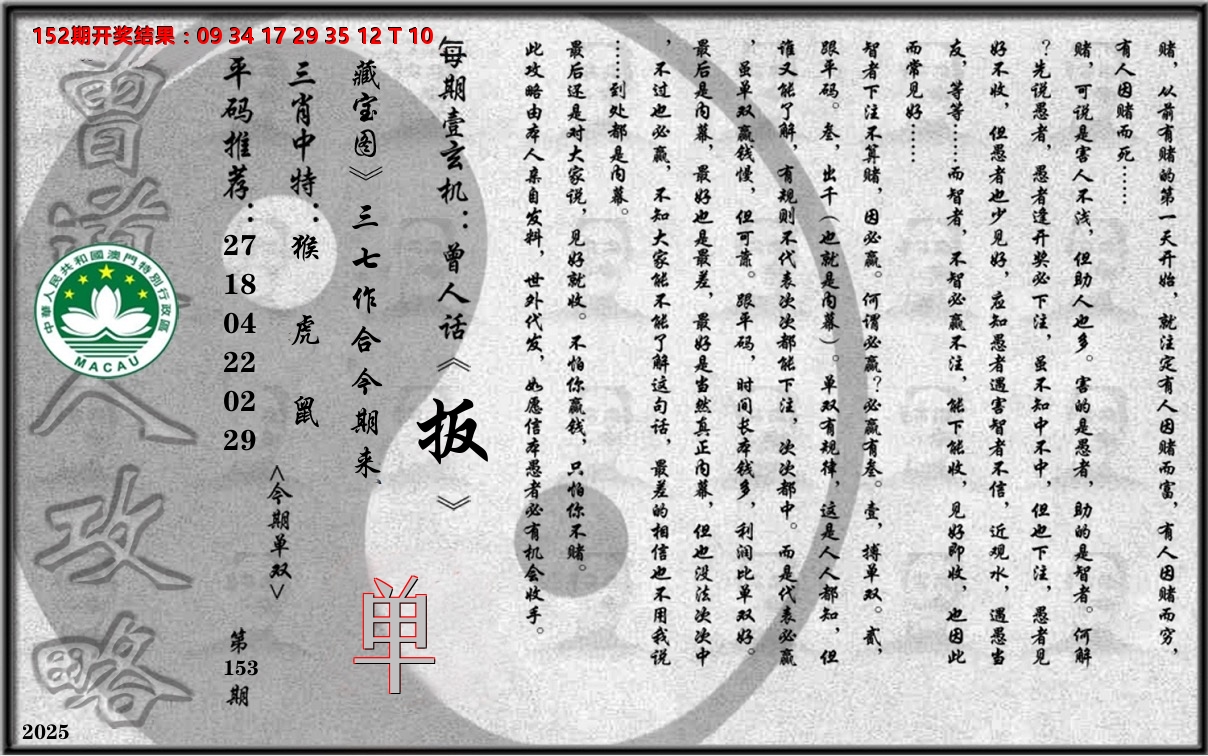 152期开奖结果：09 34 17 29 35 12 T 10
赌，从前有赌的第一天开始，就注定有人因赌而富，有人因赌而穷，
有人因赌而死……
赌，可说是害人不浅，但助人也多。害的是愚者，助的是智者。何解
？先说愚者，愚者逢开奖必下注，虽不知中不中，但也下注，愚者见
好不收，但愚者也少见好，应知愚者遇害智者不信，近观水，遇愚当
友，等等……而智者，不智必赢不注，能下能收，见好即收，也因此
而常见好……
智者下注不算赌，因必赢。何谓必赢？必赢有叁。壹，搏单双。贰，
跟平码。叁，出千（也就是内幕）。单双有规律，这是人人都知，但
谁又能了解，有规则不代表次次都能下注，次次都中。而是代表必赢
，虽单双赢钱慢，但可靠。跟平码，时间长本钱多，利润比单双好。
最后是内幕，最好也是最差，最好是当然真正内幕，但也没法次次中
，不过也必赢，不知大家能不能了解这句话，最差的相信也不用我说
……到处都是内幕。
最后还是对大家说，见好就收。不怕你赢钱，只怕你不赌。
此攻略由本人亲自发料，世外代发，如愿信本愚者必有机会收手。
每期壹玄机：曾人话《扳》
藏宝图》三七作合今期来、
三肖中特：猴 虎 鼠
平码推荐：27 18 04 22 02 29
<今期单双>
单
第153期
曾道人攻略
中華人民共和國澳門特別行政區
MACAU
2025